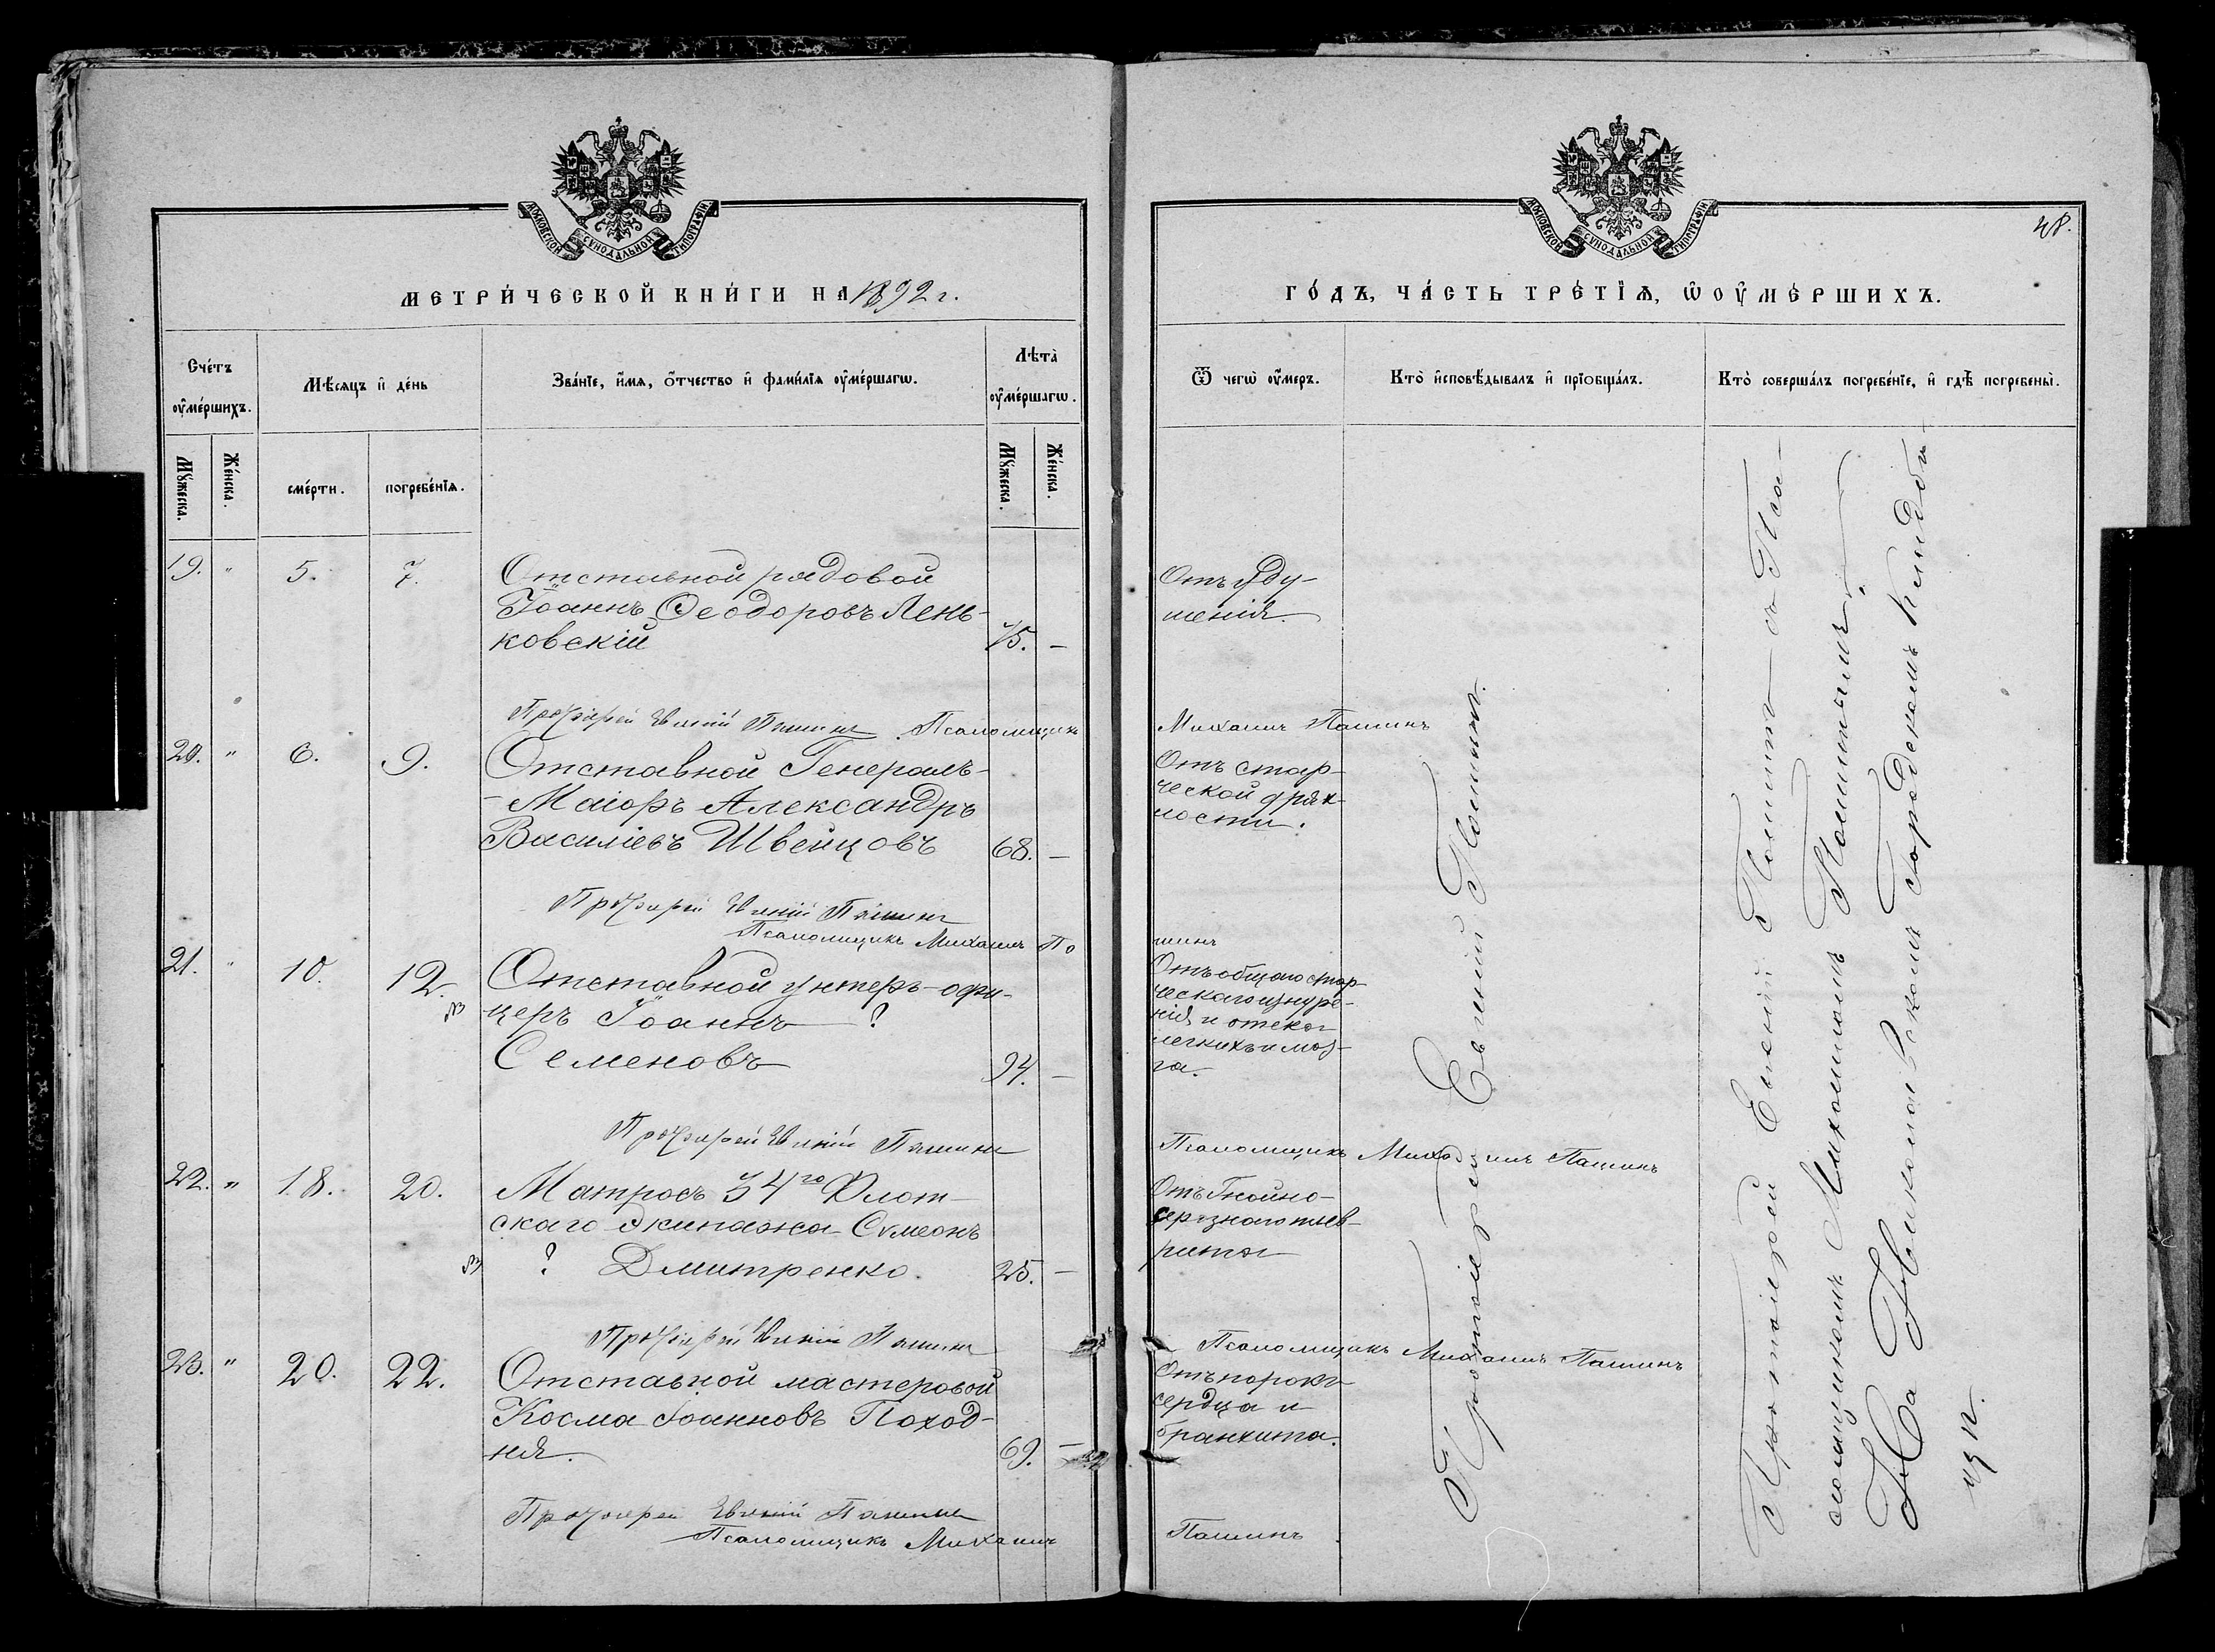 МОСКОВСКОЙ СѴНОДАЛЬНОЙ ТИПОГРАФІИ
МЕТРИ́ЧЕСКОЙ КНИ́ГИ НА 1892 г.
Сче́тъ ᲂу҆ме́ршихъ.
Мѣ́сяцъ и҆ де́нь
Зва́нїе, и҆́мѧ, ѻ҆́тчество и҆ фами́лїѧ ᲂу҆ме́ршагѡ.
Лѣта̀ ᲂу҆ме́ршагѡ.
Мꙋ́жеска.
Же́нска.
сме́рти.
погребе́нїѧ.
Мꙋ́жеска.
Же́нска.
19. " 5. 7. Отставной рядовой
Іоаннъ Ѳеодоровъ Лень-
ковскій 75. —
Протоіерей Евгеній Пашинъ Псаломщикъ
20. " 6. 9. Отставной Генералъ-
-Маіоръ Александръ
Василіевъ Швейцовъ 68. —
Протоіерей Евгеній Пашинъ
Псаломщикъ Михаилъ Па
21. " 10. 12. Отставной унтеръ-офи-
церъ Іоаннъ ?
Семеновъ 94. —
Протоіерей Евгеній Пашинъ
22. " 18. 20. Матросъ 34го Флот-
скаго Экипажа Сѵмеонъ
? Дмитренко. 25. —
Протоіерей Евгеній Пашинъ
23. " 20. 22. Отставной мастеровой
Косма Іоанновъ Поход-
ня. 69. —
Протоіерей Евгеній Пашинъ
Псаломщикъ Михаилъ
48.
МОСКОВСКОЙ СѴНОДАЛЬНОЙ ТИПОГРАФІИ
ГО́ДЪ, ЧА́СТЬ ТРЕ́ТЇѦ, Ѡ҆ ОУ҆МЕ́РШИХЪ.
Ѿ чегѡ̀ ᲂу҆́меръ.
Кто̀ и҆сповѣ́дывалъ и҆ прїѡбща́лъ.
Кто̀ соверша́лъ погребе́нїе, и҆ гдѣ̀ погребены̀.
Отъ уду-
шенія.
Михаилъ Пашинъ
Отъ стар-
ческой дрях-
лости.
шинъ
Отъ общаго стар-
ческаго изнуре-
нія и отека
легкихъ и моз-
га.
Псаломщикъ Михаилъ Пашинъ
Отъ Гнойно-
серознаго плев-
рита
Псаломщикъ Михаилъ Пашинъ
Отъ порока
сердца и
бранхита.
Пашинъ
Протоіерей Евгеній Пашинъ.
Протоіерей Евгеній Пашинъ съ Пса-
ломщикомъ Михаиломъ Пашинымъ.
На Николаевскомъ городскомъ кладби-
щѣ.